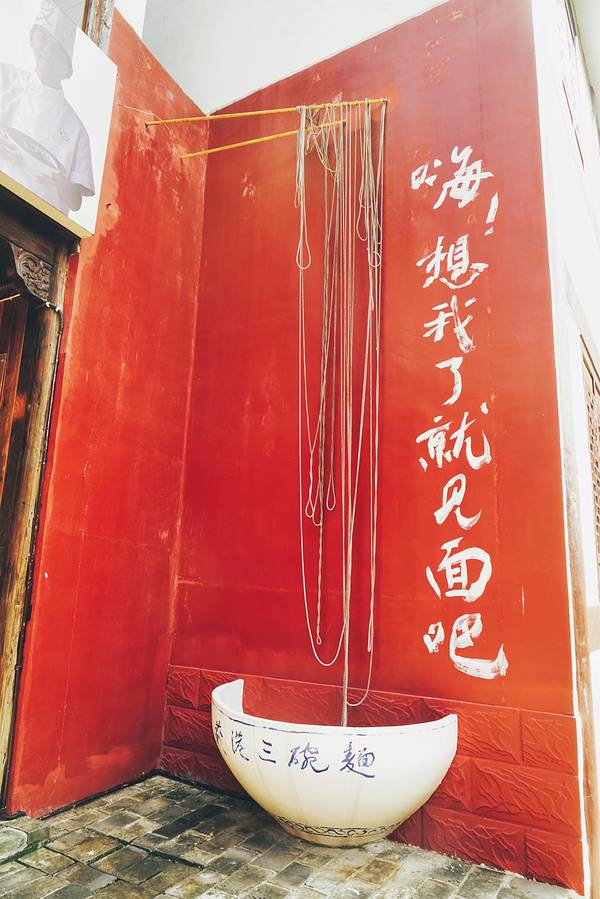 嗨！想我了就见面吧
港三碗麵